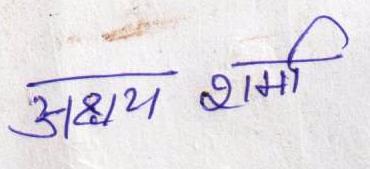 अक्षय शर्मा